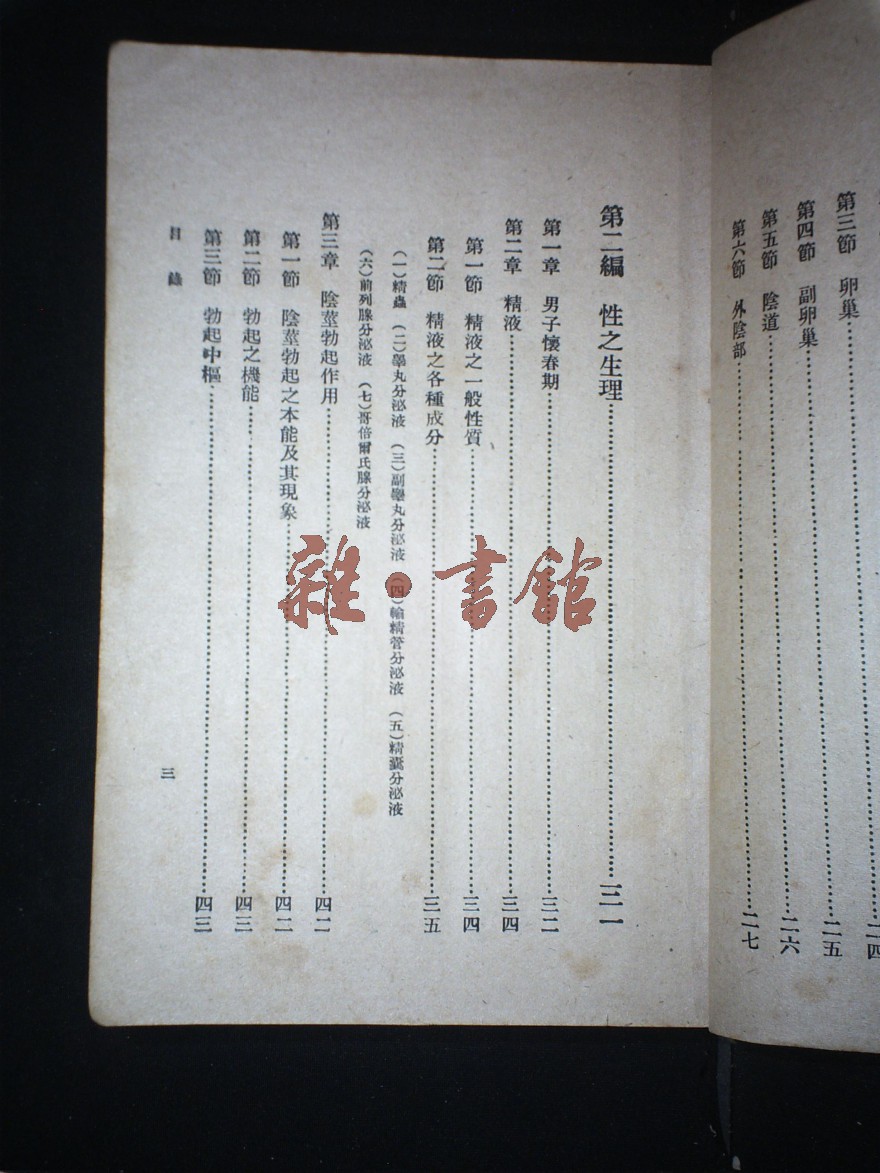 第三節　卵巢……二四
第四節　副卵巢……二五
第五節　陰道……二六
第六節　外陰部……二七
第二編　性之生理……三一
第一章　男子懷春期……三二
第二章　精液……三四
第一節　精液之一般性質……三四
第二節　精液之各種成分……三五
（一）精蟲　（二）睾丸分泌液　（三）副睾丸分泌液　（四）輸精管分泌液　（五）精囊分泌液
（六）前列腺分泌液　（七）哥倍爾氏腺分泌液
第三章　陰莖勃起作用……四二
第一節　陰莖勃起之本能及其現象……四二
第二節　勃起之機能……四三
第三節　勃起中樞……四三
目錄
三
雜·書館